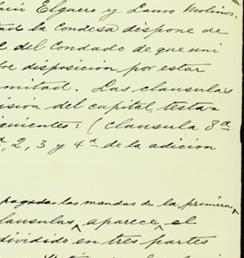 Elguero y Lauro Molinos.
la Condesa dispone de
del Condado de que uni
disposicion por estar
mitad. Las clausulas
sion del capital, testa-
guientes: (clausula 8ª
2, 3 y 4ª de la adicion
pagadas las mandas de la primera,
lausulas, aparece, el
dividido en tres partes